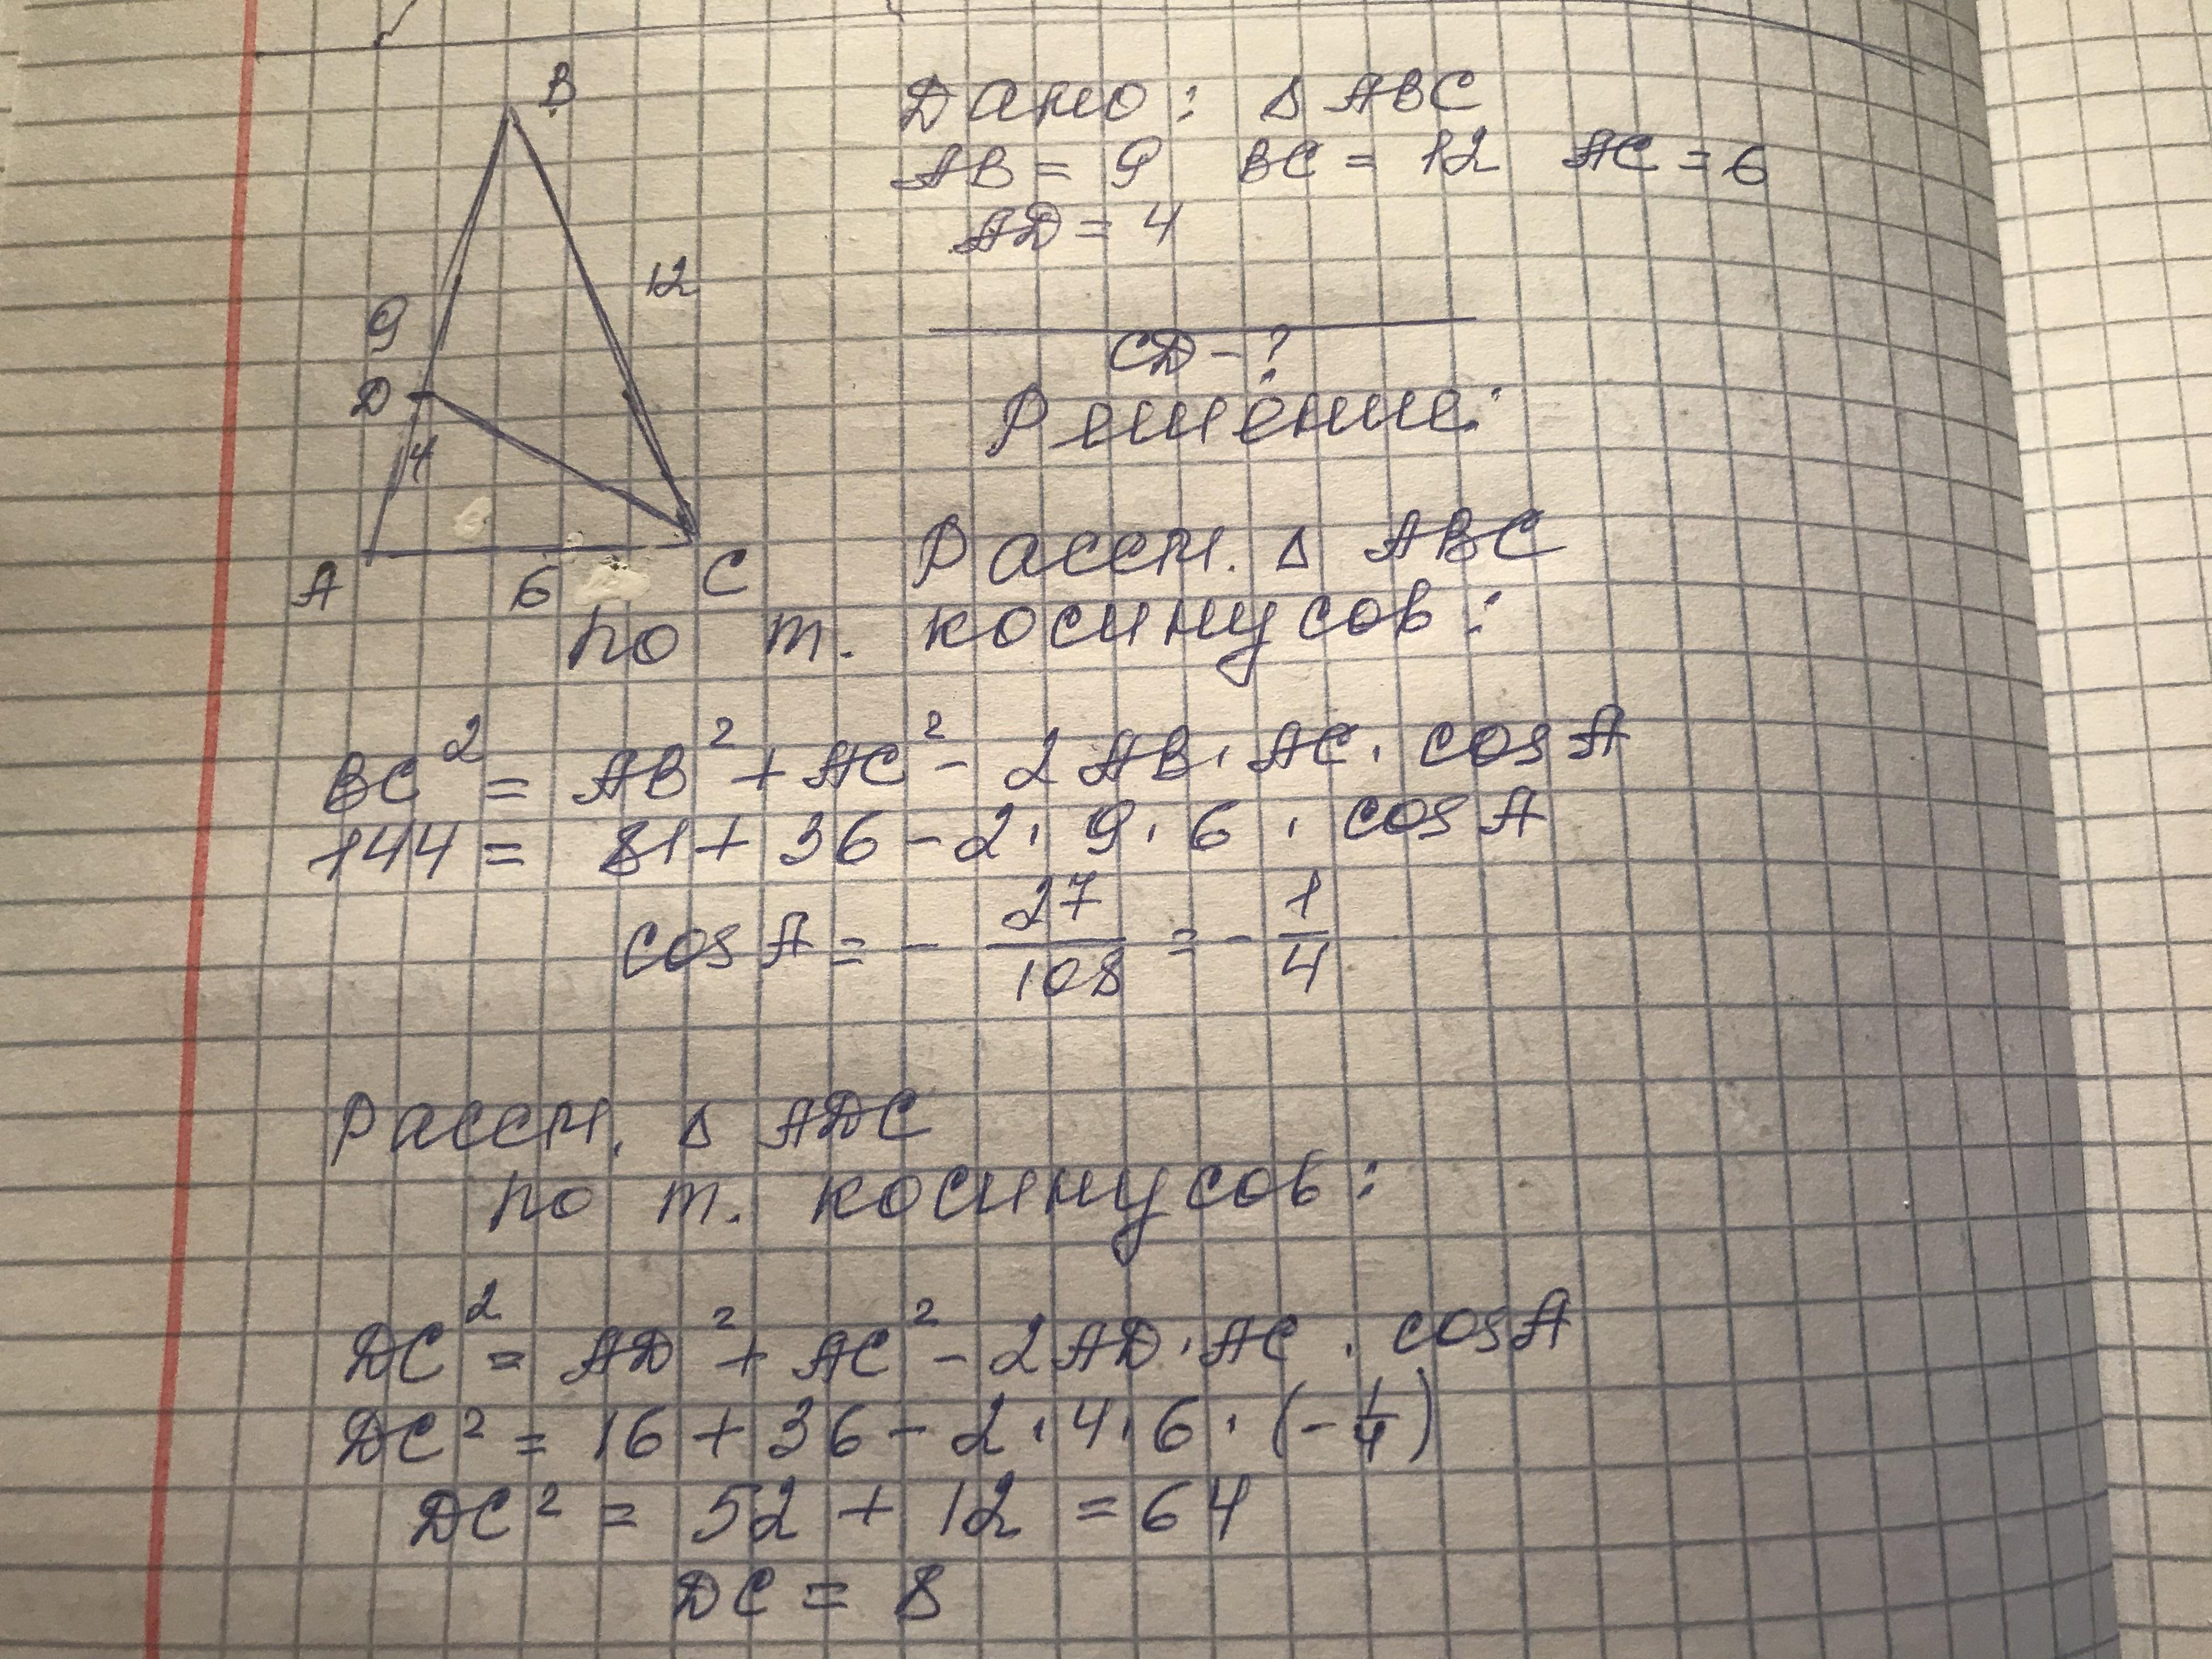 B
Дано: Δ ABC
AB = 9 BC = 12 AC = 6
AD = 4
12
9
CD - ?
D
Решение:
4
Рассм. Δ ABC
A 6 C
по т. косинусов:
BC² = AB² + AC² - 2AB · AC · cos A
144 = 81 + 36 - 2 · 9 · 6 · cos A
cos A = - 27/108 = - 1/4
Рассм. Δ ADC
по т. косинусов:
DC² = AD² + AC² - 2AD · AC · cos A
DC² = 16 + 36 - 2 · 4 · 6 · (- 1/4)
DC² = 52 + 12 = 64
DC = 8